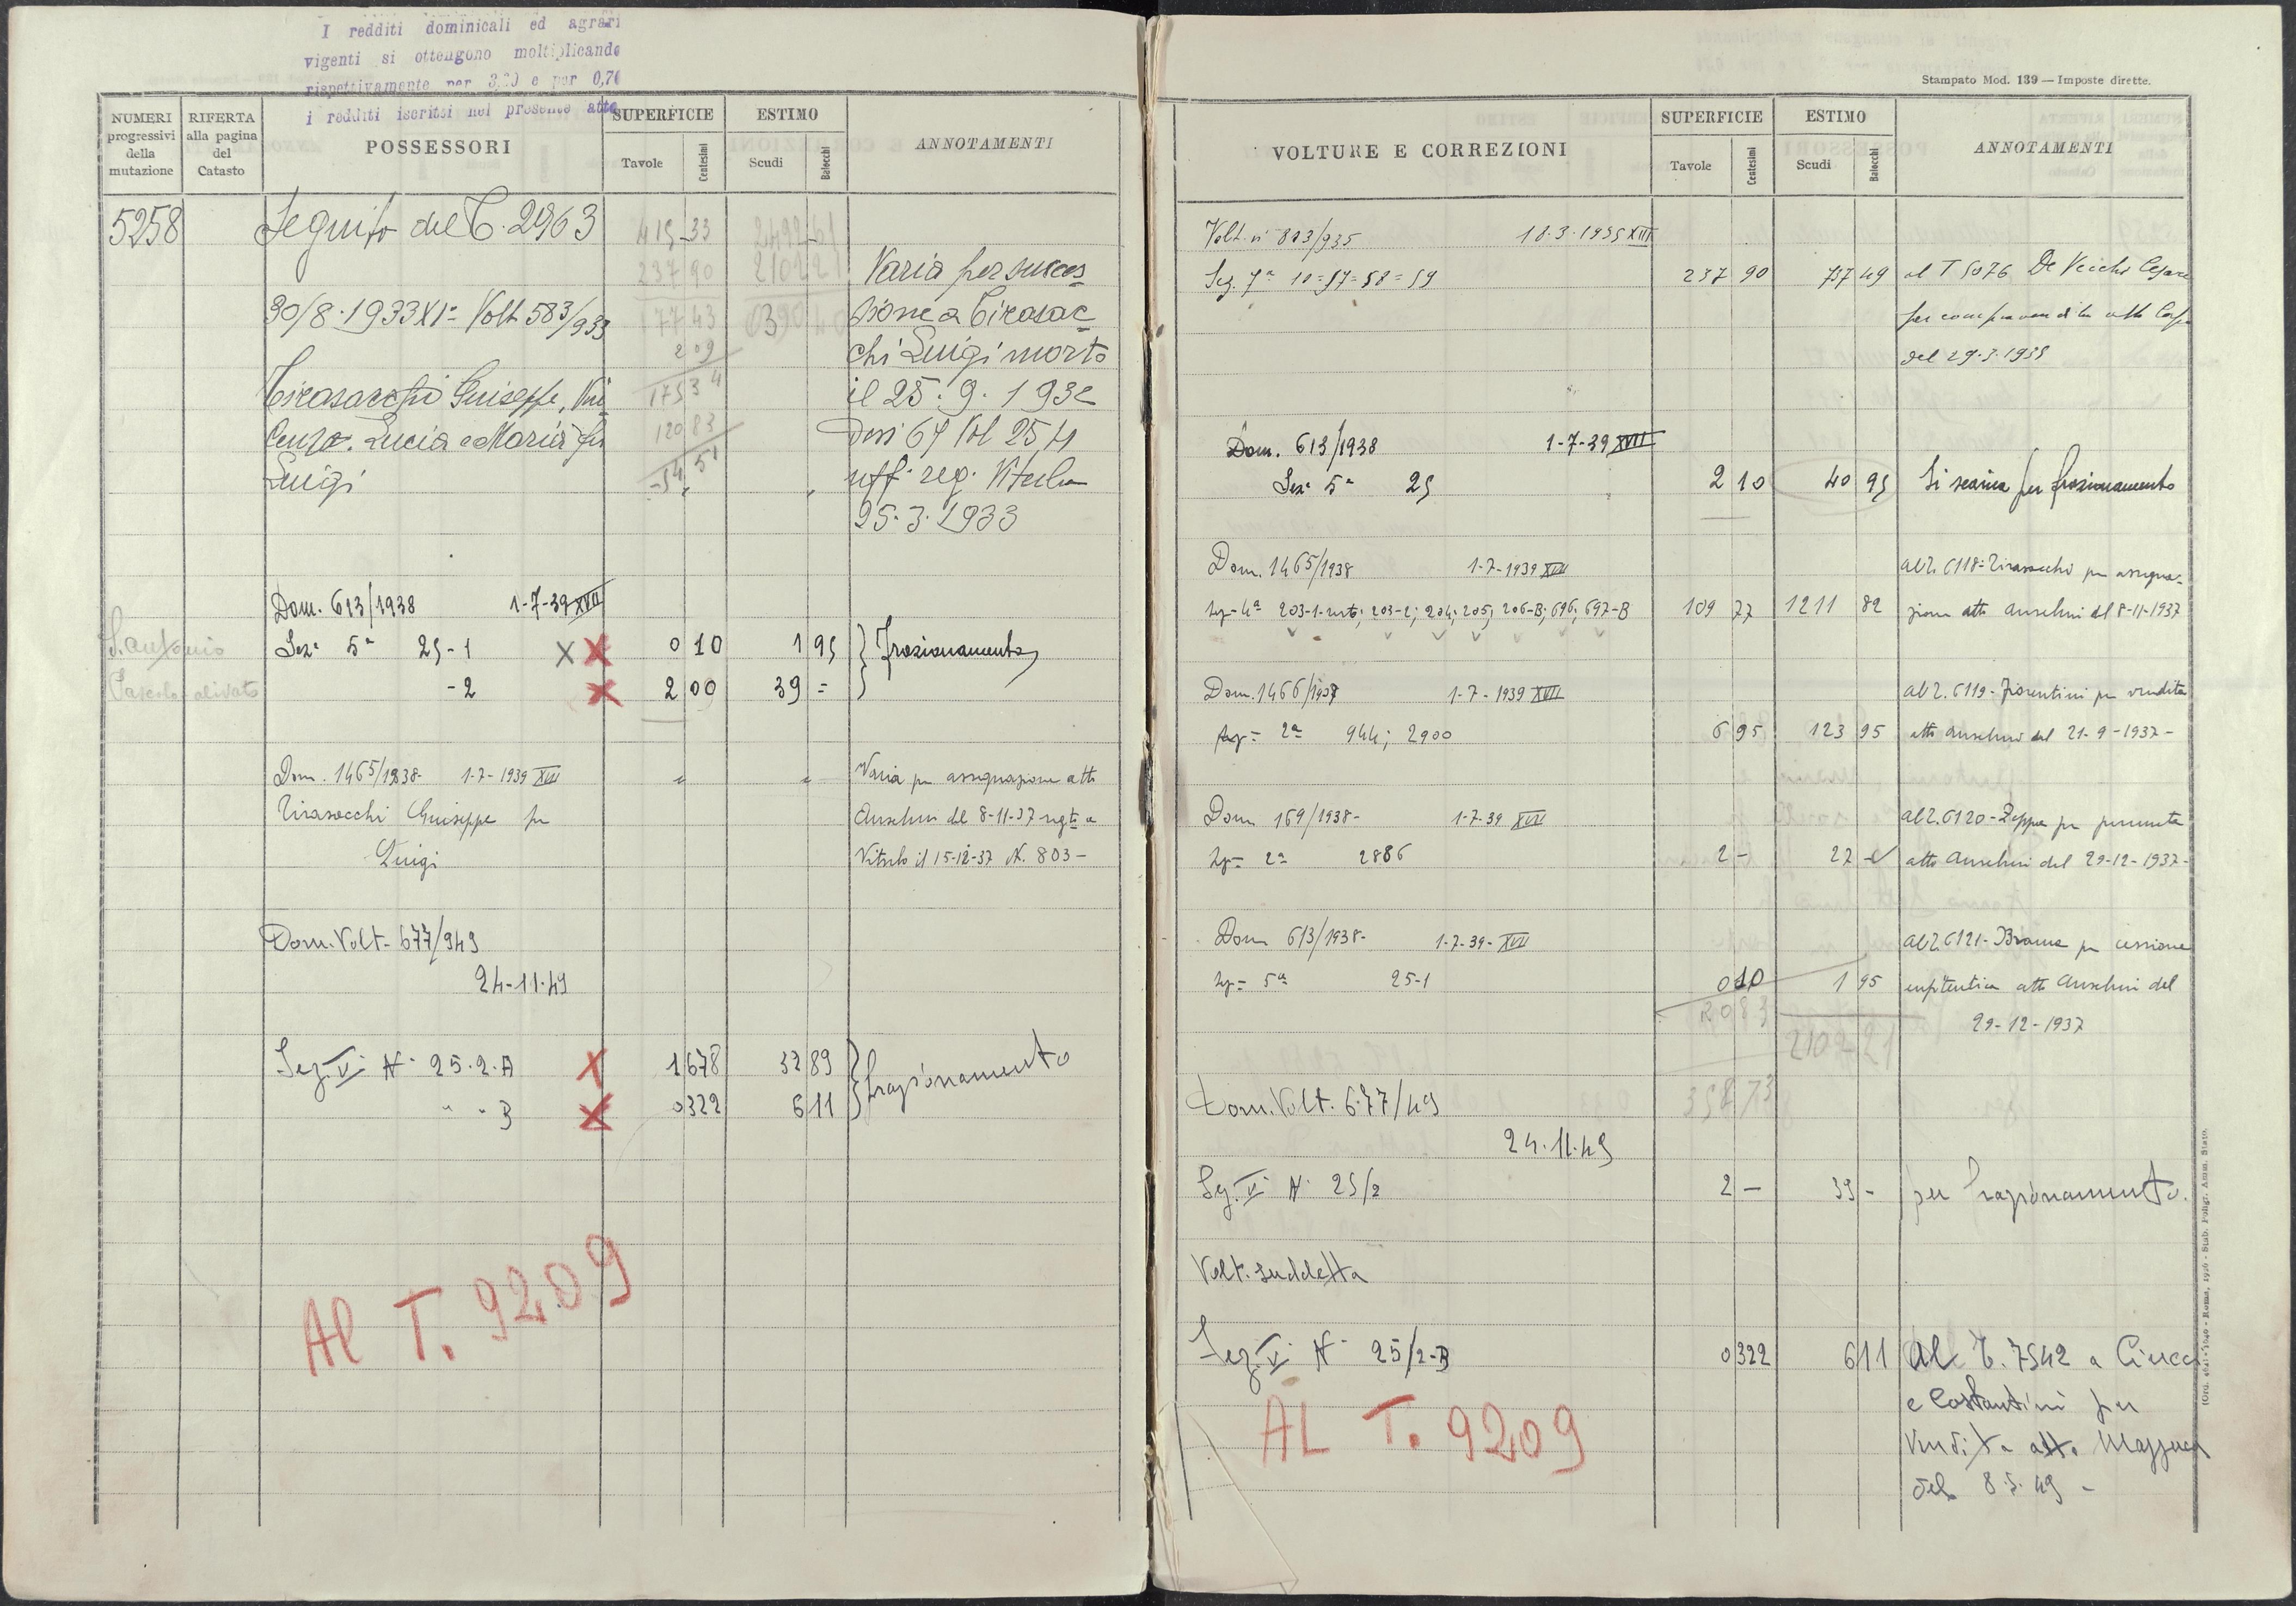 I redditi dominicali ed agrari
vigenti si ottengono moltiplicando
rispettivamente per 3,20 e per 0,70
i redditi iscritti nel presente atto
NUMERI progressivi della mutazione
RIFERTA alla pagina del Catasto
POSSESSORI
SUPERFICIE
Tavole Centesimi
ESTIMO
Scudi Baiocchi
ANNOTAMENTI
5258 Seguito del T. 2963 415 33 2492 61
237 90 2102 21 Varia per succes
30/8.1933 XIº Volt 583/933 177 43 0390 40 sione a Tirasac
2 09 chi Luigi morto
Tirasacchi Giuseppe, Vin 175 34 il 25.9.1932
cenzo, Lucia e Maria fu 120 83 Den 67 Vol 254
Luigi 54 51 uff. reg. Viterbo
25.3.1933
Dom. 613/1938 1-7-39 XVII
S. Antonio Sezº 5ª 25-1 X X 0 10 1 95 } Frazionamento
Pascolo olivato -2 X 2 00 39 =
Dom. 1465/1938- 1-7-1939 XVII " " Varia per assegnazione atto
Tirasacchi Giuseppe fu Anselmi del 8-11-37 regto a
Luigi Viterbo il 15-12-37 N. 803-
Dom. Volt- 677/949
24-11-49
Sez. V Nº 25.2.A X 1 678 32 89 } frazionamento
" " B X 0 322 6 11
Al T. 9209
Stampato Mod. 139 — Imposte dirette.
VOLTURE E CORREZIONI
SUPERFICIE
Tavole Centesimi
ESTIMO
Scudi Baiocchi
ANNOTAMENTI
Volt. nº 803/935 18.3.1935 XIII
Sez. 7ª 10=57=58=59 237 90 737 49 al T 5076 De Vecchi Cesare
per compravendita atto
del 29.3.1935
Dom. 613/1938 1-7-39 XVII
Sezº 5ª 25 2 10 40 95 Si scarica per frazionamento
Dom. 1465/1938 1-7-1939 XVII al T. 6118= Tirasacchi per assegna-
Sez= 4ª 203-1-resto; 203-2; 204; 205; 206-B; 696; 697-B 109 77 1211 82 zione atto Anselmi del 8-11-1937
Dom. 1466/1938 1-7-1939 XVII al T. 6119- Fiorentini per vendita
Sez= 2ª 944; 2900 6 95 123 95 atto Anselmi del 21-9-1937-
Dom 169/1938- 1-7-39 XVII al T. 6120- Zeppa per permuta
Sez= 2ª 2886 2 - 27 - atto Anselmi del 29-12-1937-
Dom 613/1938- 1-7-39- XVII al T. 6121- per cessione
Sez= 5ª 25-1 0 10 1 95 enfiteutica atto Anselmi del
2083 29-12-1937
2102 21
Dom. Volt. 677/49 358 73
24.11.49
Sez. V Nº 25/2 2 - 39 - per frazionamento.
Volt. suddetta
Sez. V Nº 25/2-B 0 322 6 11 Al T. 7542 a Ciucci
e Costantini per
vendita atto
del 8.5.49 -
AL T. 9209